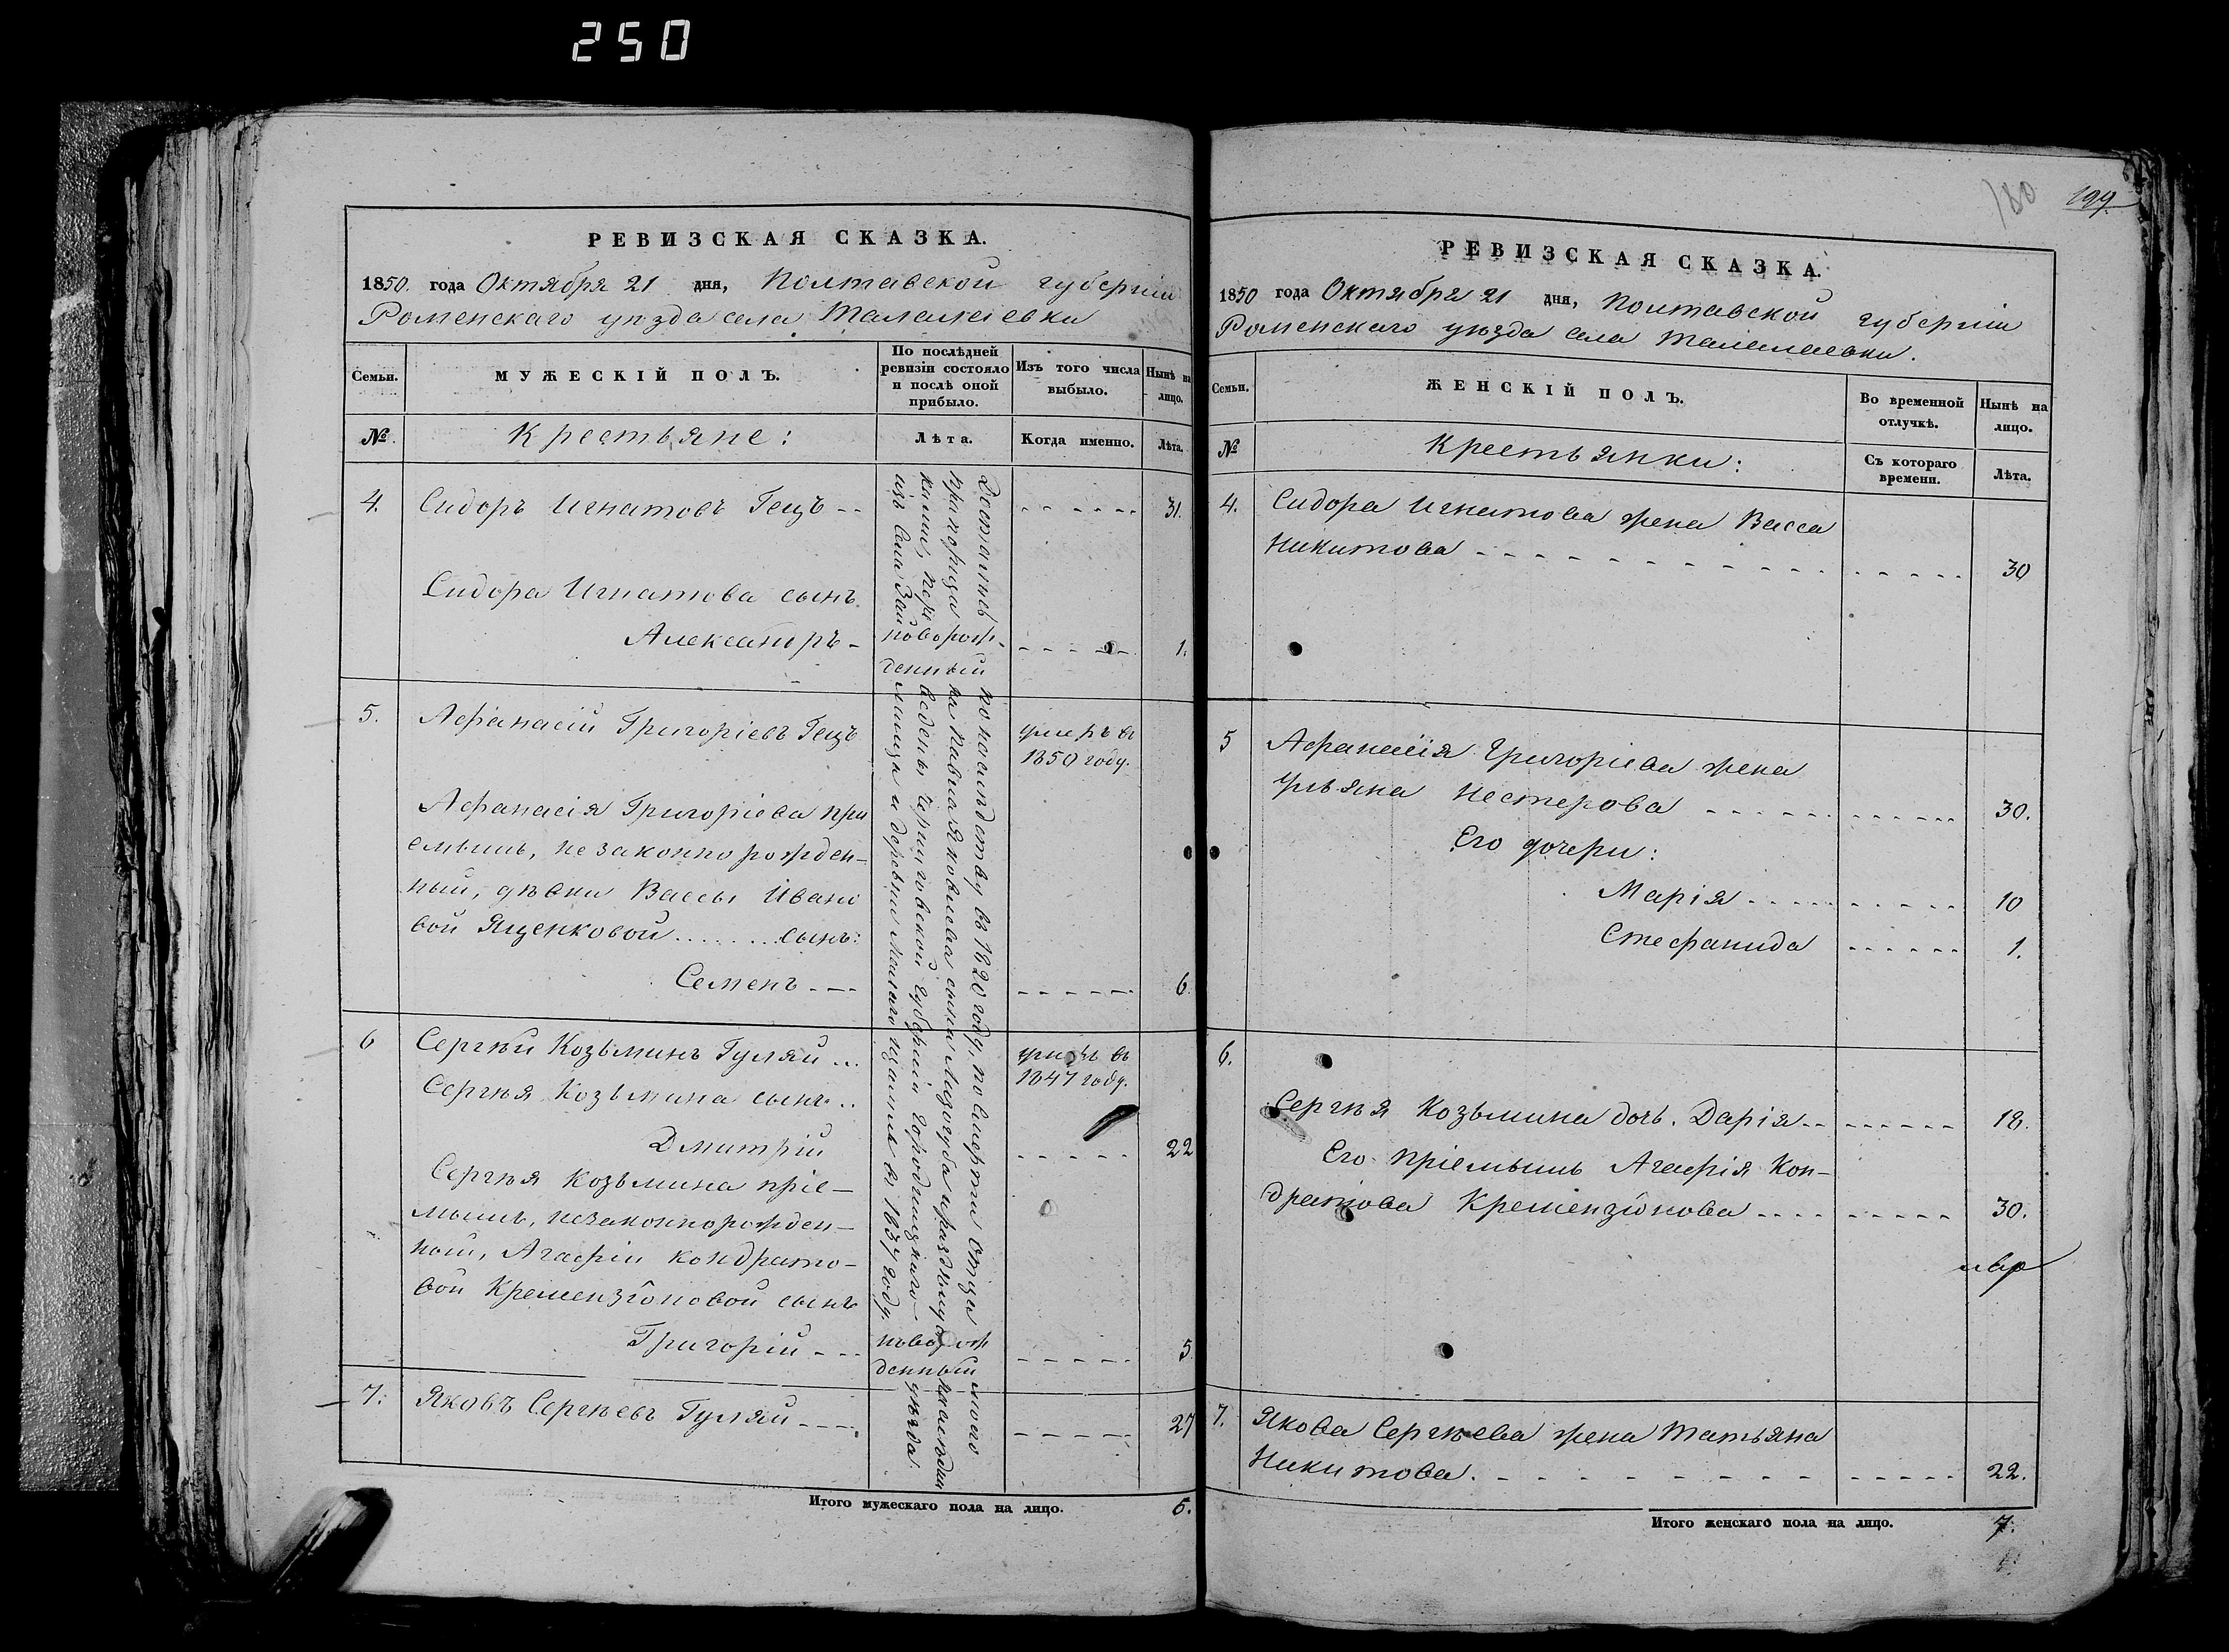 250
РЕВИЗСКАЯ СКАЗКА.
1850. года Октября 21 дня, Полтавской губерніи
Роменскаго уѣзда села Талалаевки
Семьи.
МУЖЕСКІЙ ПОЛЪ.
По послѣдней ревизіи состояло и послѣ оной прибыло.
Изъ того числа выбыло.
Нынѣ на лицо.
№
Крестьяне:
Лѣта.
Когда именно.
Лѣта.
4. Сидоръ Игнатовъ Гецъ 31.
Сидора Игнатова сынъ
Александръ новорож-
денный 1.
5. Афанасій Григоріевъ Гецъ умеръ въ
1850 году.
Афанасія Григоріева прі
емышь, незаконно рожден-
ный, дѣвки Вассы Ивано
вой Яценковой ........ сынъ:
Семенъ 6.
6 Сергѣй Козьминъ Гуляй ... умеръ въ
1847 году.
Сергѣя Козьмина сынъ..
Дмитрій 22
Сергѣя Козьмина пріе-
мышь, незаконнорожден-
ный, Агафіи Кондрато-
вой Кремензіоновой сынъ
Григорій новорож
денный 5
7. Яковъ Сергѣевъ Гуляй 27
Достались по наслѣдству въ 1820 году, по смерти отца моего
прапорщика Павла Яковлева сына
переведены Черниговской губерніи Городницкаго уѣзда
изъ села и деревни въ 1837 году.
Итого мужескаго пола на лицо. 5.
180 199
РЕВИЗСКАЯ СКАЗКА.
1850 года Октября 21 дня, Полтавской губерніи
Роменскаго уѣзда села Талалаевки.
Семьи.
ЖЕНСКІЙ ПОЛЪ.
Во временной отлучкѣ.
Нынѣ на лицо.
№
Крестьянки:
Съ котораго времени.
Лѣта.
4. Сидора Игнатова жена Васса
Никитова 30
5 Афанасія Григоріева жена
Ульяна Нестерова 30.
Его дочери:
Марія 10
Стефанида 1.
6.
Сергѣя Козьмина дочь. Дарія 18.
Его пріемышь Агафія Кон-
дратова Кремензіонова 30.
7. Якова Сергѣева жена Татьяна
Никитова. 22.
Итого женскаго пола на лицо. 7.